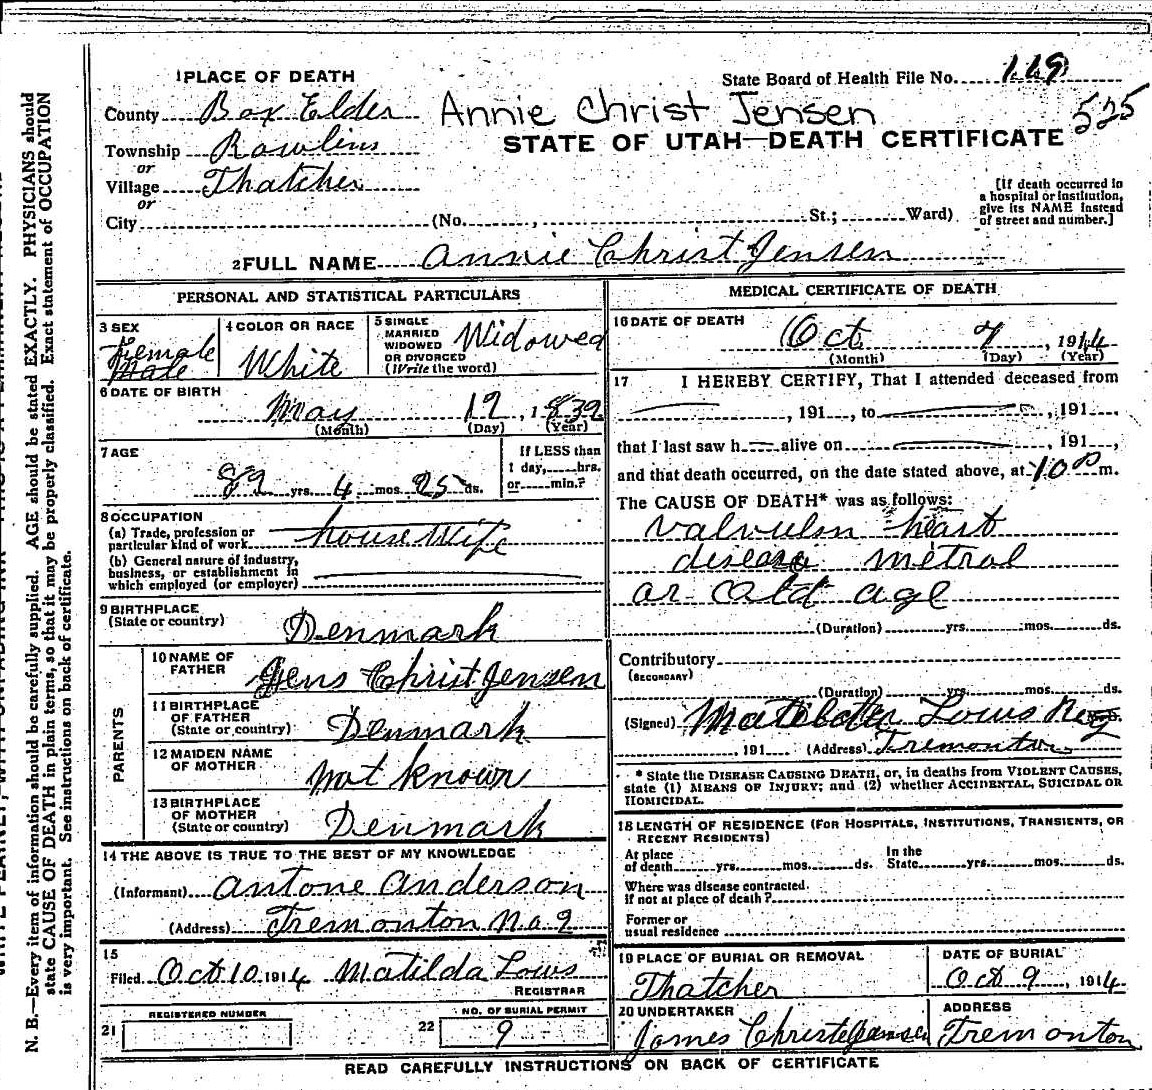 1 PLACE OF DEATH
State Board of Health File No. 119
County Box Elder
Annie Christ Jensen
525
STATE OF UTAH—DEATH CERTIFICATE
Township Rawlins
or
Village Thatcher
or
City (No. , St.; Ward)
[If death occurred in
a hospital or institution,
give its NAME instead
of street and number.]
2 FULL NAME Annie Christ Jensen
PERSONAL AND STATISTICAL PARTICULARS
3 SEX
Female
Male
4 COLOR OR RACE
White
5 SINGLE
MARRIED
WIDOWED
OR DIVORCED
(Write the word)
Widowed
6 DATE OF BIRTH
May 19, 1839
(Month) (Day) (Year)
7 AGE
yrs. 4 mos. 25 ds.
If LESS than
1 day, hrs.
or min.?
8 OCCUPATION
(a) Trade, profession or
particular kind of work housewife
(b) General nature of industry,
business, or establishment in
which employed (or employer)
9 BIRTHPLACE
(State or country)
Denmark
PARENTS
10 NAME OF
FATHER
Jens Christ Jensen
11 BIRTHPLACE
OF FATHER
(State or country)
Denmark
12 MAIDEN NAME
OF MOTHER
not known
13 BIRTHPLACE
OF MOTHER
(State or country)
Denmark
14 THE ABOVE IS TRUE TO THE BEST OF MY KNOWLEDGE
(Informant) Antone Anderson
(Address) Tremonton No. 2
15
Filed Oct 10 1914 Matilda Lows
REGISTRAR
REGISTERED NUMBER
21
NO. OF BURIAL PERMIT
22 9
MEDICAL CERTIFICATE OF DEATH
16 DATE OF DEATH
Oct 7, 1914
(Month) (Day) (Year)
17 I HEREBY CERTIFY, That I attended deceased from
, 191 , to , 191 ,
that I last saw h alive on , 191 ,
and that death occurred, on the date stated above, at 10 P m.
The CAUSE OF DEATH* was as follows:
heart
disease mitral
or old age
(Duration) yrs. mos. ds.
Contributory
(SECONDARY)
(Duration) yrs. mos. ds.
(Signed) Lows Reg
, 191 (Address) Tremonton
* State the DISEASE CAUSING DEATH, or, in deaths from VIOLENT CAUSES,
state (1) MEANS OF INJURY; and (2) whether ACCIDENTAL, SUICIDAL OR
HOMICIDAL.
18 LENGTH OF RESIDENCE (FOR HOSPITALS, INSTITUTIONS, TRANSIENTS, OR
RECENT RESIDENTS)
At place
of death yrs. mos. ds.
In the
State yrs. mos. ds.
Where was disease contracted
if not at place of death?
Former or
usual residence
19 PLACE OF BURIAL OR REMOVAL
Thatcher
DATE OF BURIAL
Oct 9, 1914
20 UNDERTAKER
James Christe Jensen
ADDRESS
Tremonton
READ CAREFULLY INSTRUCTIONS ON BACK OF CERTIFICATE
N. B.—Every item of information should be carefully supplied. AGE should be stated EXACTLY. PHYSICIANS should
state CAUSE OF DEATH in plain terms, so that it may be properly classified. Exact statement of OCCUPATION
is very important. See instructions on back of certificate.